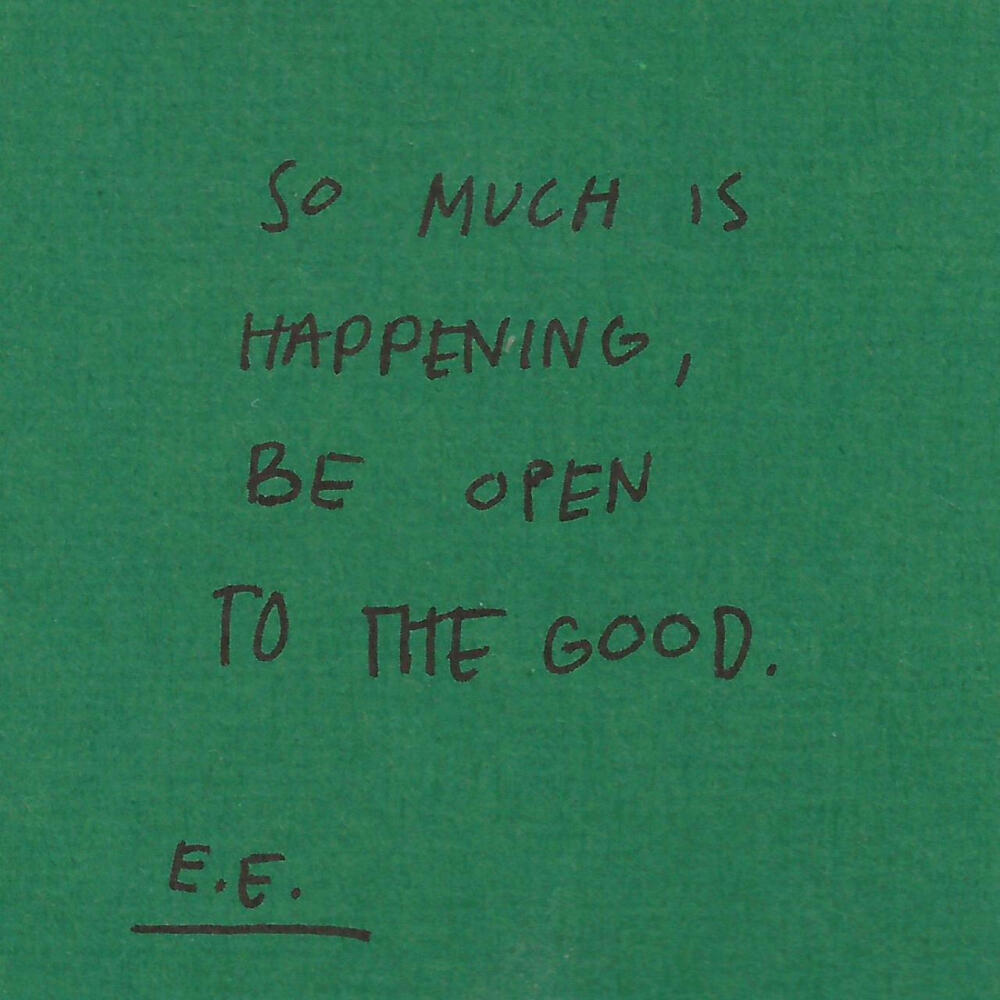 SO MUCH IS
HAPPENING,
BE OPEN
TO THE GOOD.
E.E.